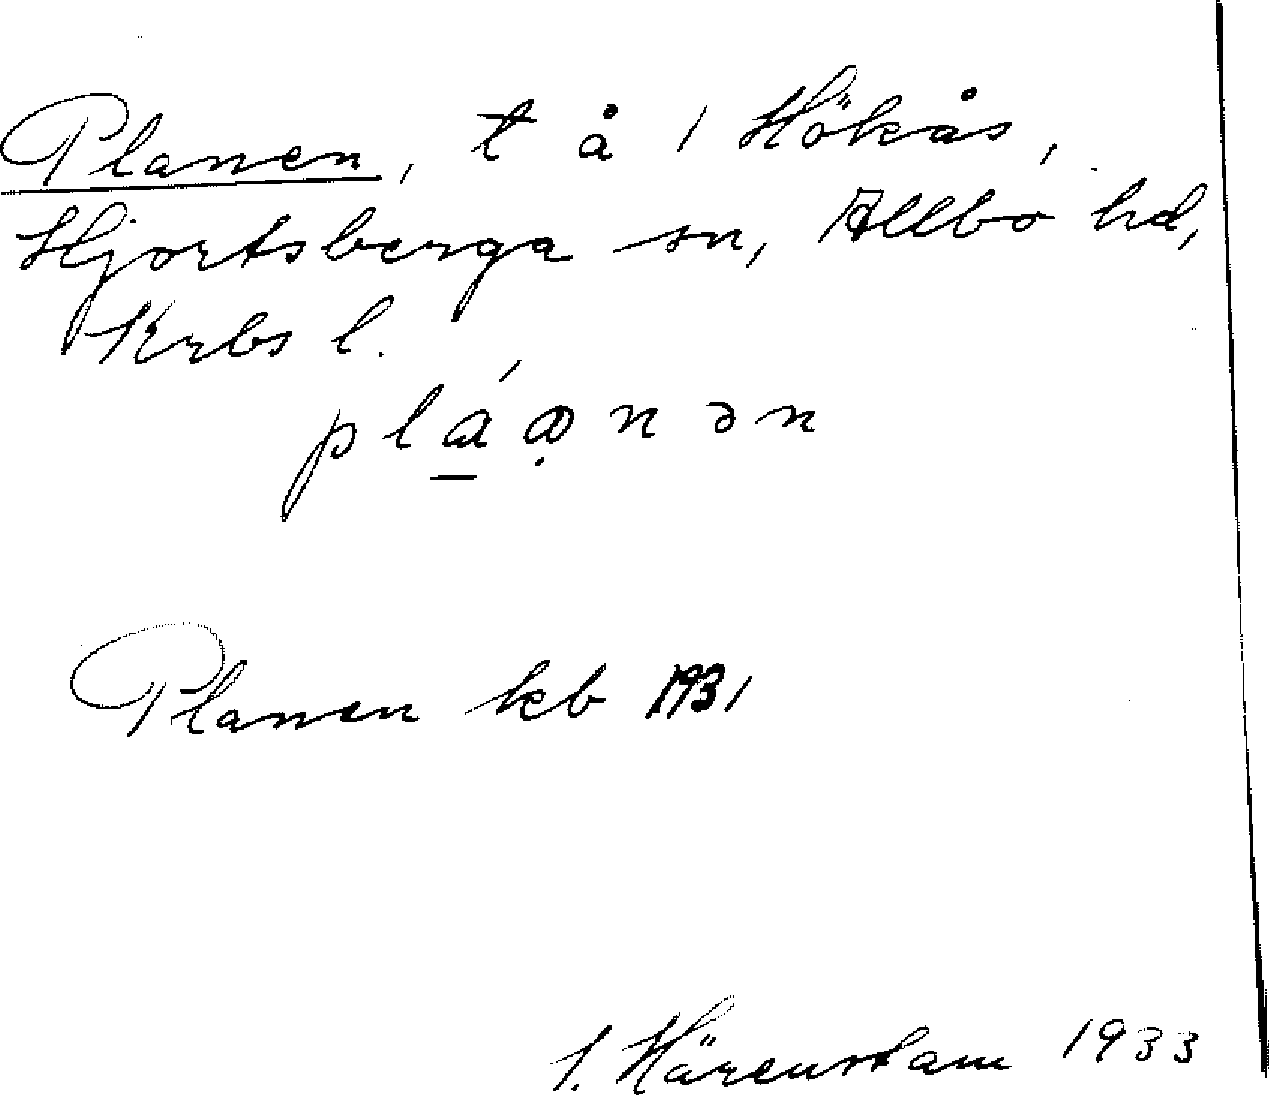 Planen, t å 1 Hökås,
Hjortsberga sn, Allbo hd,
Krbs l.
Planen kb 1931
S. Härenstam 1933